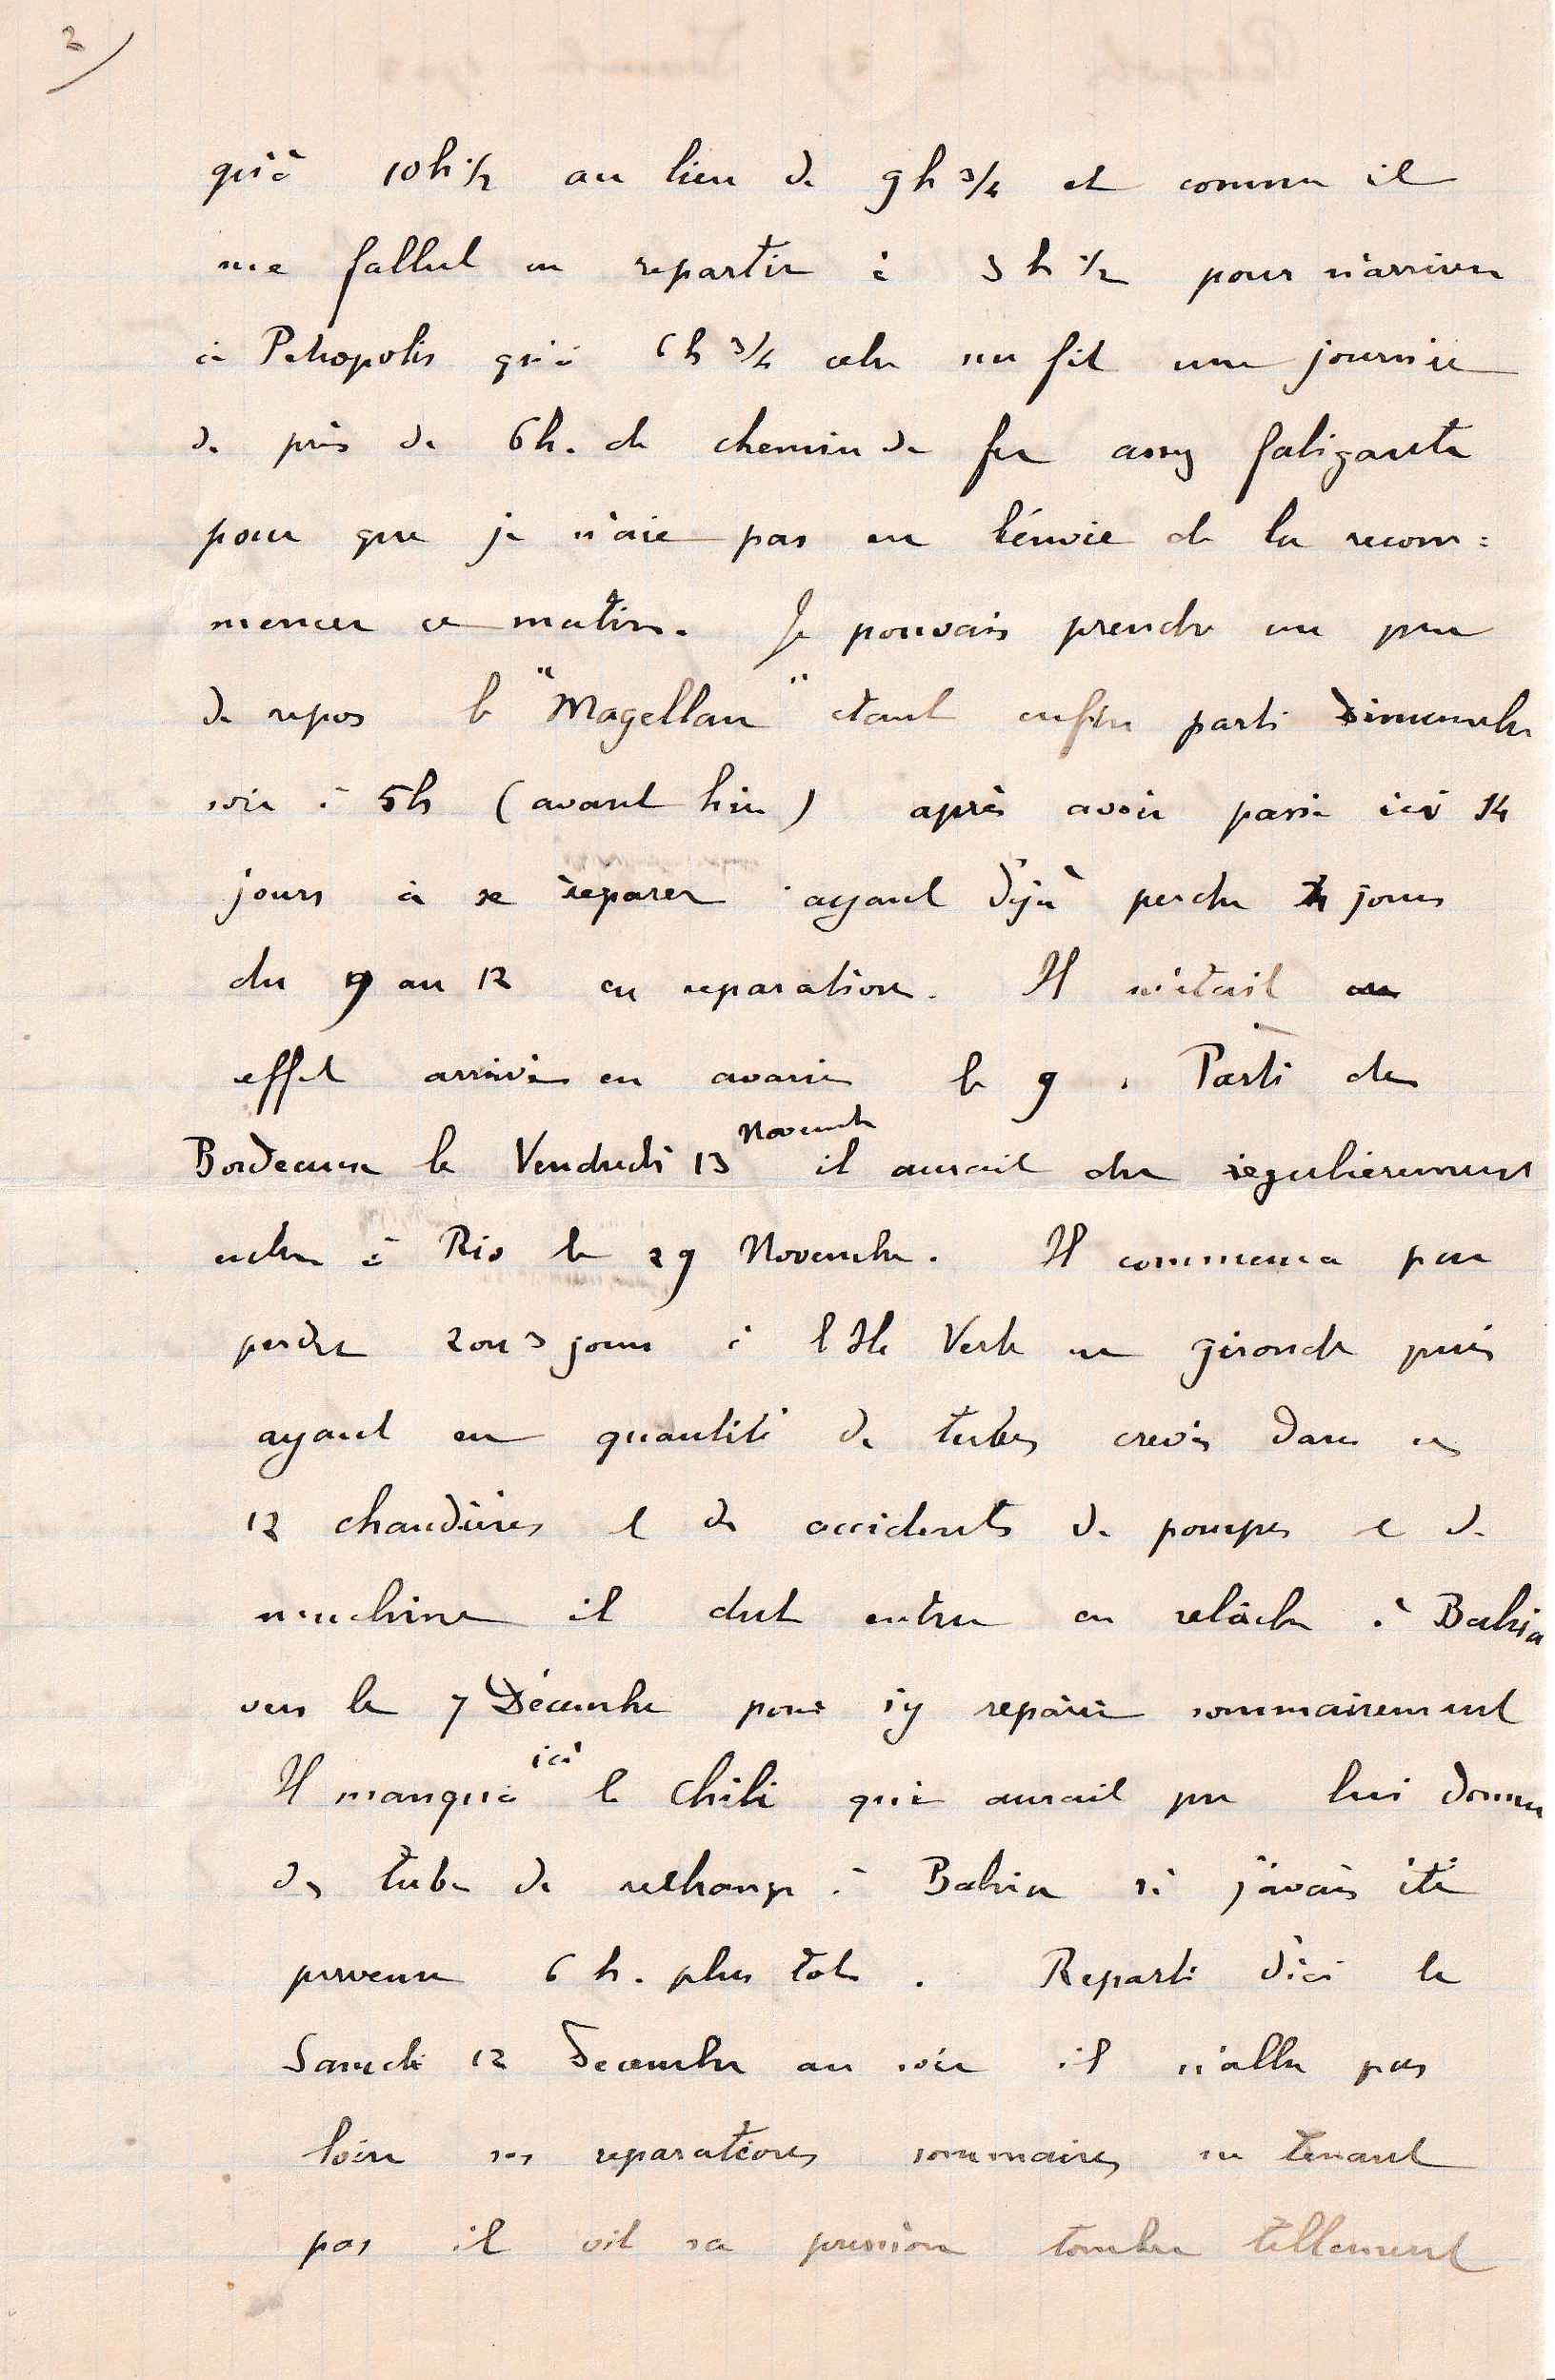 2/
qu'à 10h 1/2 au lieu de 9h 3/4 et comme il
me fallut en repartir à 3h 1/2 pour n'arriver
à Petropolis qu'à 6h 3/4 cela me fit une journée
de près de 6h. de chemin de fer assez fatigante
pour que je n'aie pas eu l'envie de la recom=
mencer ce matin. Je pouvais prendre un peu
de repos le "Magellan" étant enfin parti Dimanche
soir à 5h (avant hier) après avoir passé ici 14
jours à se réparer ayant déjà perdu 4 jours
du 9 au 12 en reparation. Il m'était en
effet arrivé en avarie le 9. Parti de
Bordeaux le Vendredi 13 Novembre il aurait du regulierement
etre à Rio le 29 Novembre. Il commenca par
perdre 2 ou 3 jours à l'Ile Verte en gironde puis
ayant eu quantité de tubes crevés dans ses
12 chaudières et des accidents de pompes et de
machine il dut entrer en relâche à Bahia
vers le 7 Décembre pour s'y réparer sommairement
Il manqua ici le Chili qui aurait pu lui donner
des tubes de rechange à Bahia si j'avais été
prevenu 6 h. plus tot. Reparti d'ici le
Samedi 12 Decembre au soir il n'alla pas
loin ses reparations sommaires ne tenant
pas il vit sa pression tomber tellement